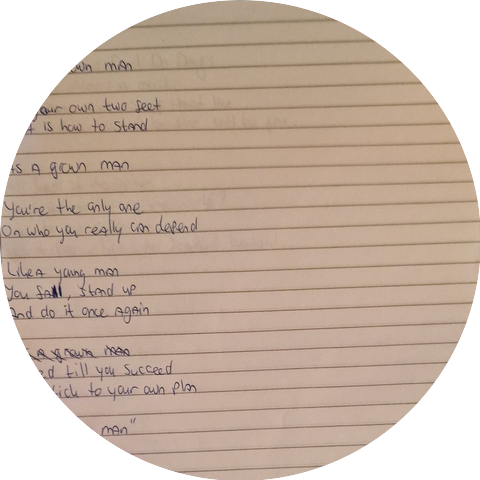 man
your own two feet
is how to stand
As A grown man
You're the only one
On who you really can depend
Like A young man
You fall, stand up
And do it once Again
A grown man
till you succeed
to your own plan
man"